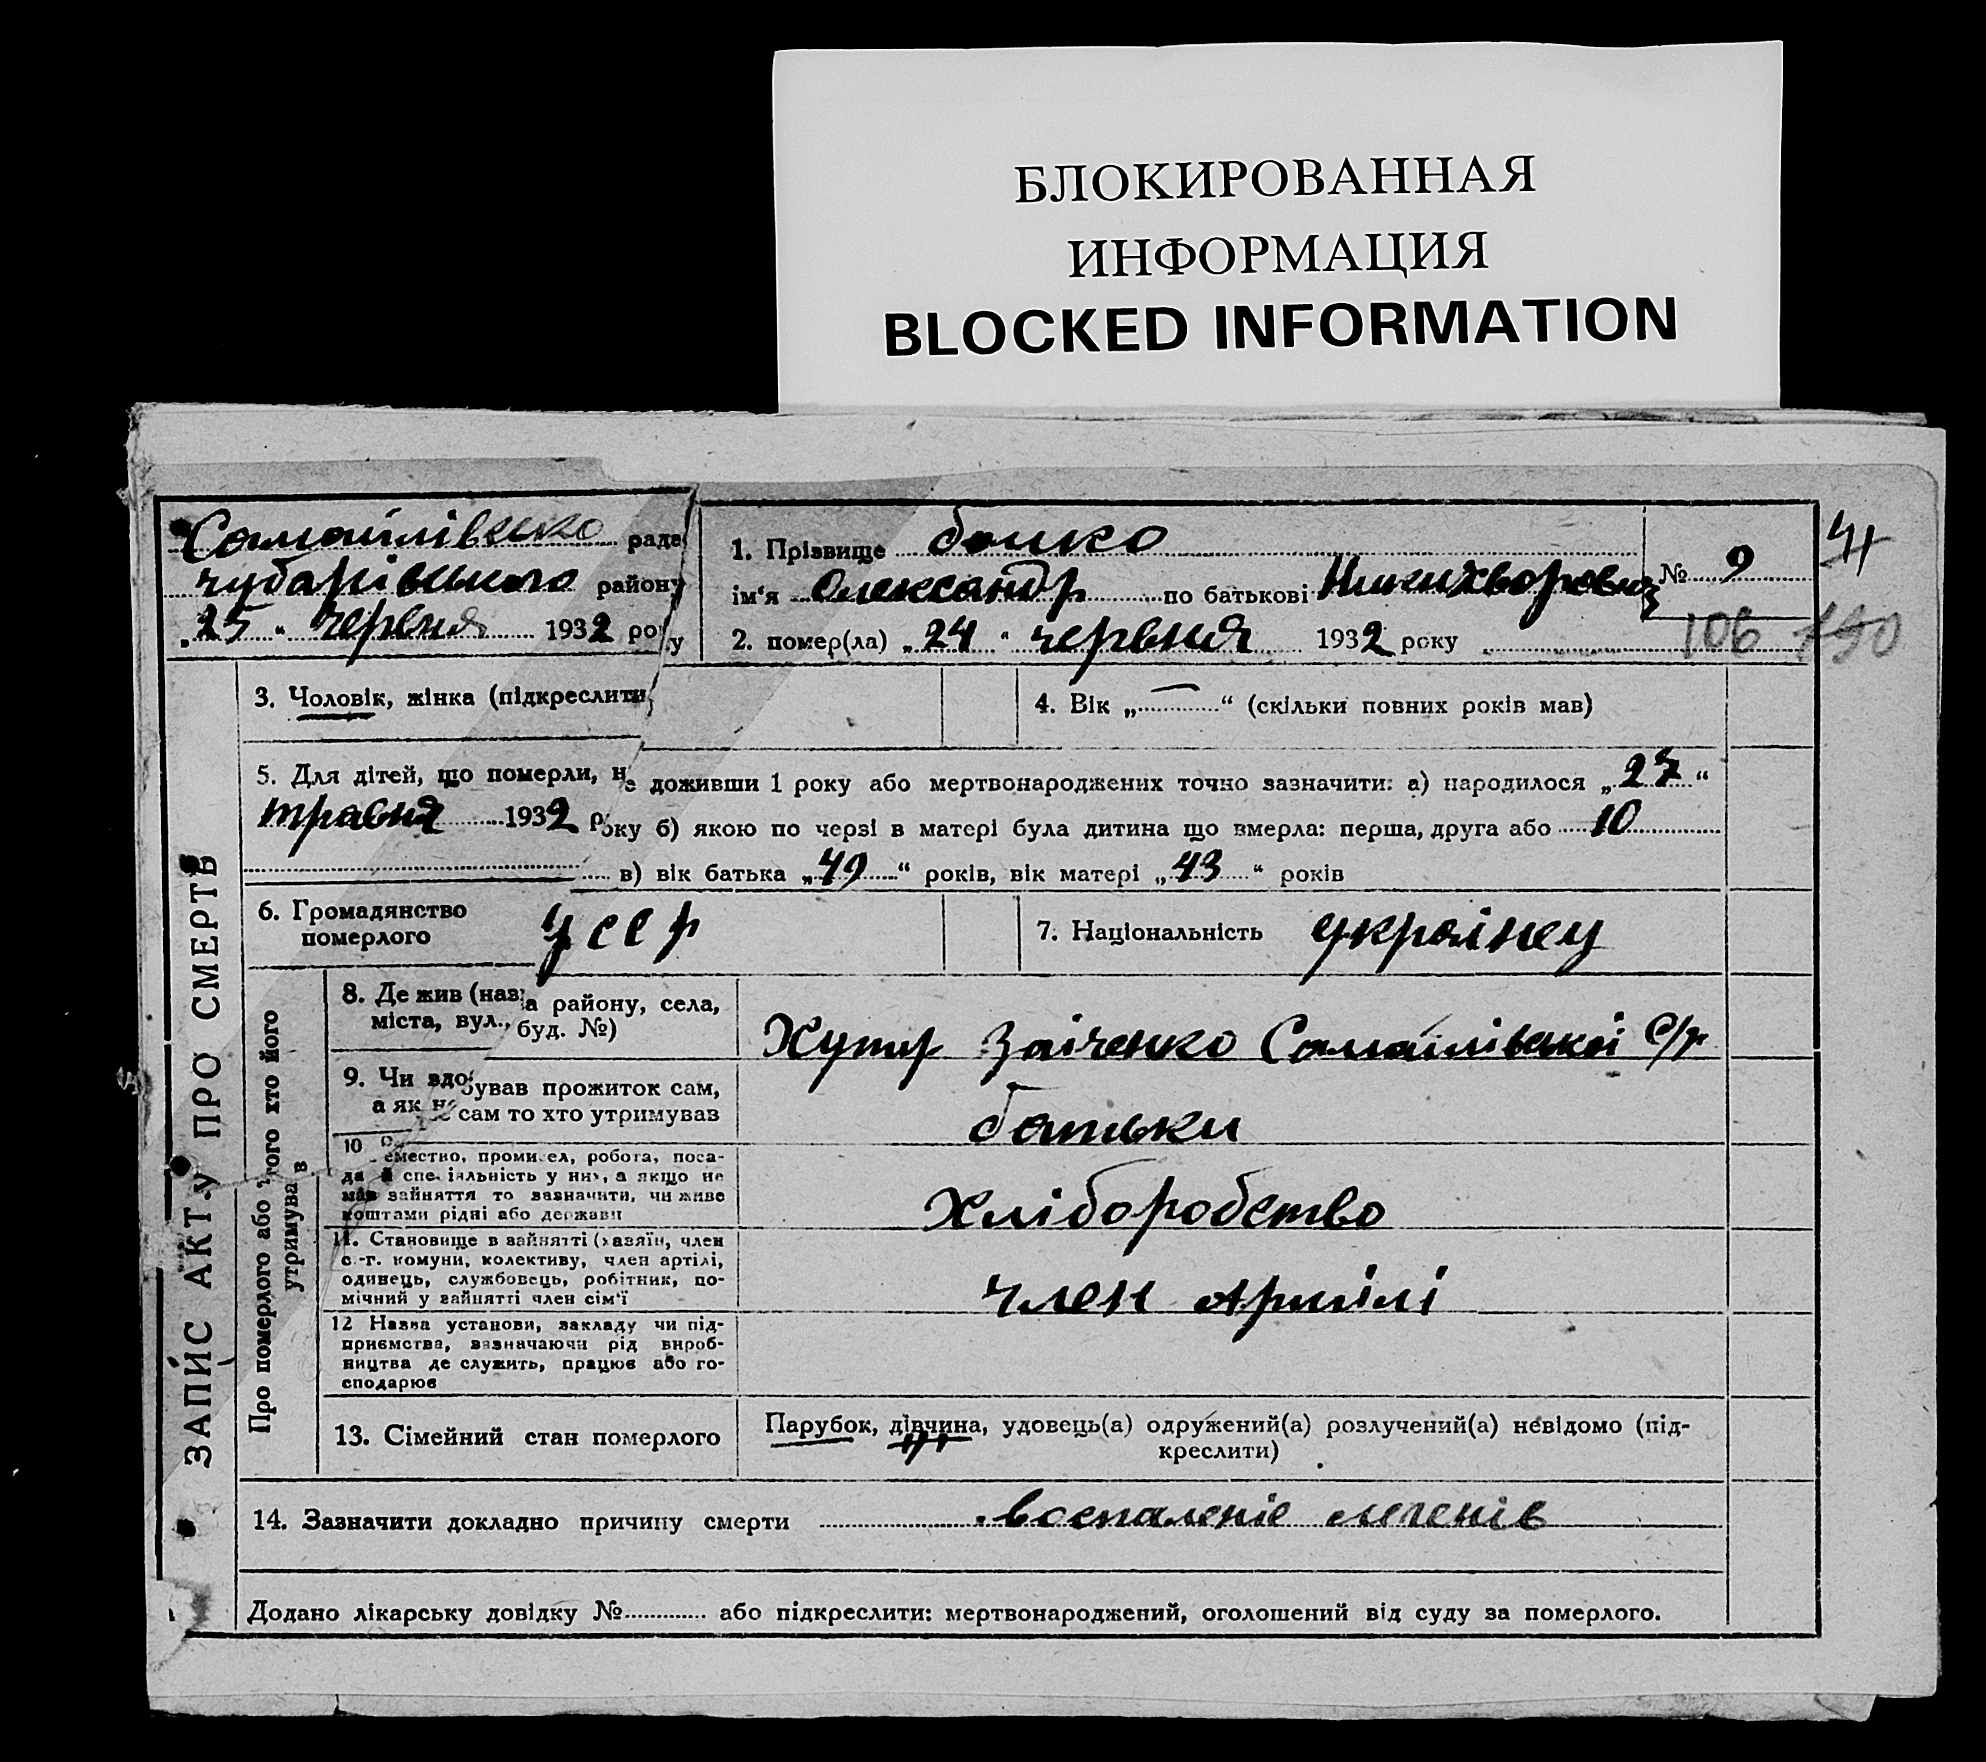 БЛОКИРОВАННАЯ
ИНФОРМАЦИЯ
BLOCKED INFORMATION
Самайлівсько рада
Чубарівського району
„25“ червня 1932 року
1. Прізвище Бошко
№ 9
ім'я Олександр по батькові
2. помер(ла) „24“ червня 1932 року
106
3. Чоловік, жінка (підкреслити)
4. Вік „—“ (скільки повних років мав)
5. Для дітей, що померли, не доживши 1 року або мертвонароджених точно зазначити: а) народилося „27“
травня 1932 року б) якою по черзі в матері була дитина що вмерла: перша, друга або 10
в) вік батька „49“ років, вік матері „43“ років
6. Громадянство
померлого
УССР
7. Національність українец
ЗАПИС АКТУ ПРО СМЕРТЬ
Про померлого або того хто його
утримував
8. Де жив (назва району, села,
міста, вул., буд. №)
Хутур Заіченко Самайлівськоі С/р
9. Чи здобував прожиток сам,
а як не сам то хто утримував
батьки
10 Ремество, промисел, робота, поса-
да й спеціяльність у них, а якщо не
мав зайняття то зазначити, чи живе
коштами рідні або держави
Хліборобство
11. Становище в зайнятті (хазяїн, член
с.-г. комуни, колективу, член артілі,
одинець, службовець, робітник, по-
мічний у зайнятті член сім'ї
член Артілі
12 Назва установи, закладу чи під-
приємства, зазначаючи рід вироб-
ництва де служить, працює або го-
сподарює
13. Сімейний стан померлого
Парубок, дівчина, удовець(а) одружений(а) розлучений(а) невідомо (під-
креслити)
14. Зазначити докладно причину смерти воспаленіе легенів
Додано лікарську довідку № або підкреслити: мертвонароджений, оголошений від суду за померлого.